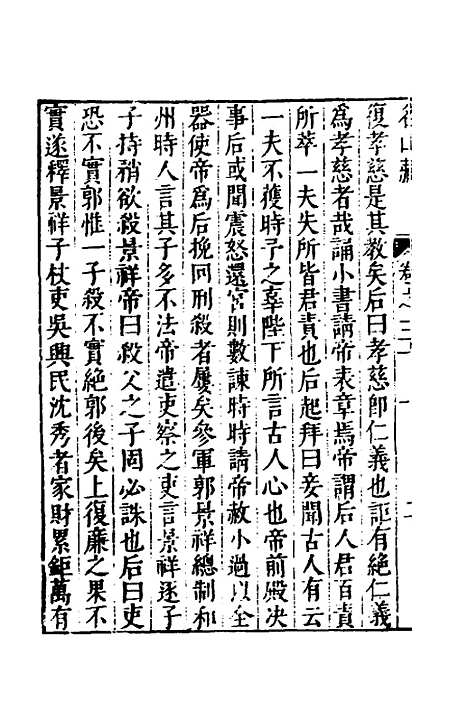 復孝慈是其教矣后曰孝慈即仁義也詎有絕仁義
爲孝慈者哉誦小書請帝表章焉帝謂后人君百責
所萃一夫失所皆君責也后起拜曰妾聞古人有云
一夫不獲時予之辜陛下所言古人心也帝前殿决
事后或聞震怒還宮則數諫時時請帝赦小過以全
器使帝爲后挽回刑殺者屢矣參軍郭景祥總制和
州時人言其子多不法帝遣吏察之吏言景祥逐子
子持矟欲殺景祥帝曰殺父之子固必誅也后曰吏
恐不實郭惟一子殺不實絕郭後矣上復廉之果不
實遂釋景祥子杖吏吳興民沈秀者家財累鉅萬有